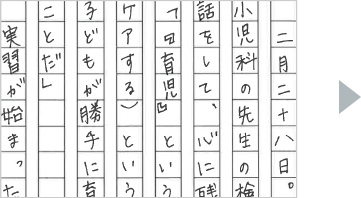 二月二十八日。
小児科の先生の検
話をして、心に残
「『育児』という
ケアする）という
子どもが勝手に育
ことだ」
実習が始まった